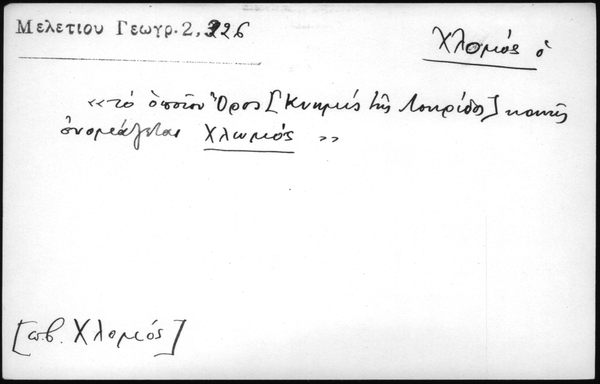 Μελετίου Γεωγρ. 2, 326
Χλομός ὁ
«τὸ ὁποῖον Ὄρος [Κνημίς τῆς Λοκρίδος] κοινῶς
ὀνομάζεται Χλωμός »
[πβ. Χλομός]